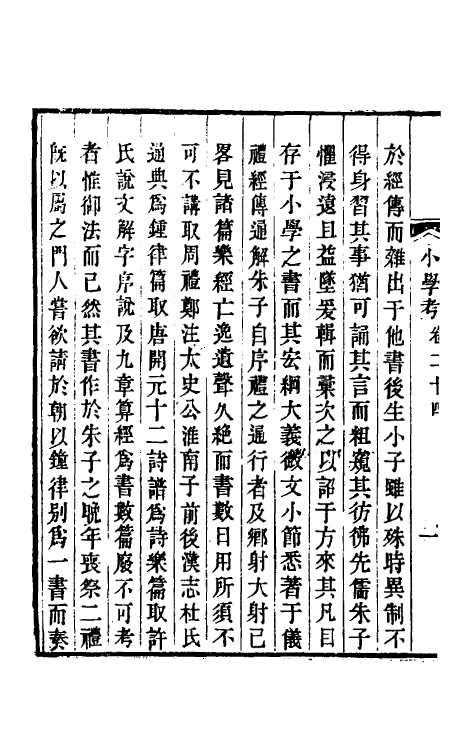 小學考卷二十四
一
於經傳而雜出于他書後生小子雖以殊時異制不
得身習其事猶可誦其言而粗窺其彷彿先儒朱子
懼浸遠且益墜爰輯而彙次之以詔于方來其凡目
存于小學之書而其宏綱大義微文小節悉著于儀
禮經傳通解朱子自序禮之通行者及鄉射大射已
畧見諸篇樂經亡逸遺聲久絶而書數日用所須不
可不講取周禮鄭注太史公淮南子前後漢志杜氏
通典爲鍾律篇取唐開元十二詩譜爲詩樂篇取許
氏說文解字序說及九章算經爲書數篇廢不可考
者惟御法而已然其書作於朱子之晩年喪祭二禮
旣以屬之門人嘗欲請於朝以鐘律別爲一書而奏